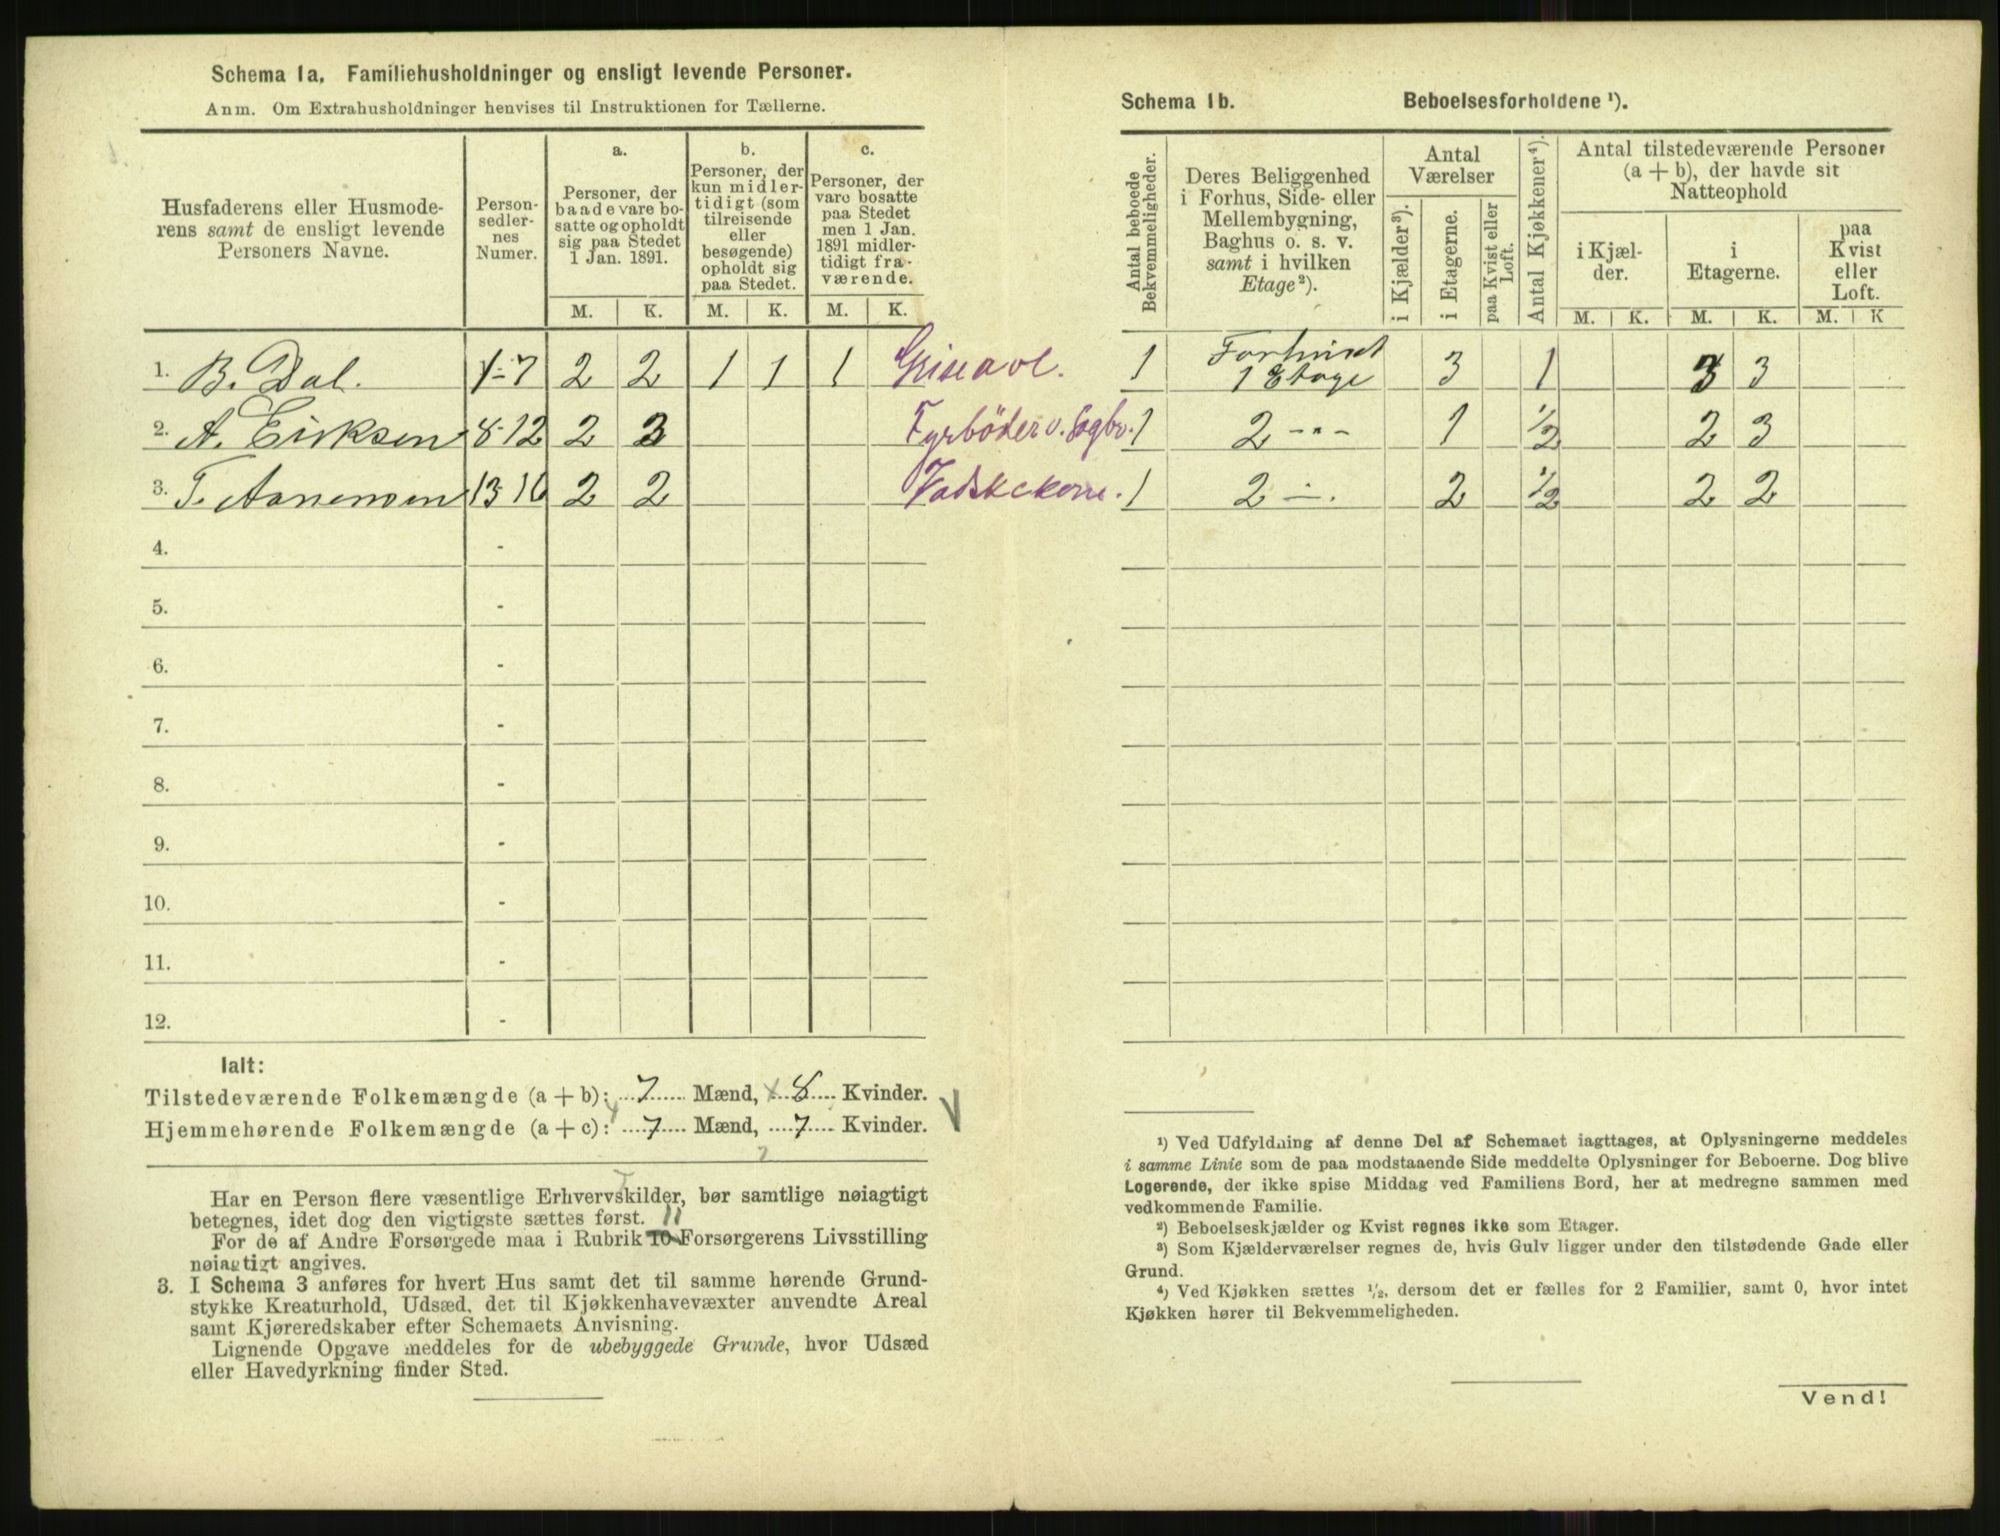 Schema 1a. Familiehusholdninger og ensligt levende Personer.
Anm. Om Extrahusholdninger henvises til Instruktionen for Tællerne.
Husfaderens eller Husmode-
rens samt de ensligt levende
Personers Navne.
Person-
sedler-
nes
Numer.
a.
Personer, der
baade vare bo-
satte og opholdt
sig paa Stedet
1 Jan. 1891.
b.
Personer, der
kun midler-
tidigt (som
tilreisende
eller
besøgende)
opholdt sig
paa Stedet.
c.
Personer, der
vare bosatte
paa Stedet
men 1 Jan.
1891 midler-
tidigt fra-
værende.
M. K. M. K. M. K.
1. B. Dal. 1-7 2 2 1 1 1 Griseavl.
2. A. Eriksen 8-12 2 3 Fyrböder v. Sagbr.
3. T. Aanensen 13-16 2 2
4. -
5. -
6. -
7. -
8. -
9. -
10. -
11. -
12. -
Ialt:
Tilstedeværende Folkemængde (a + b): 7 Mænd, 8 Kvinder.
Hjemmehørende Folkemængde (a + c): 7 Mænd, 7 Kvinder.
Har en Person flere væsentlige Erhvervskilder, bør samtlige nøiagtigt
betegnes, idet dog den vigtigste sættes først. 11
For de af Andre Forsørgede maa i Rubrik 10 Forsørgerens Livsstilling
nøiagtigt angives.
3. I Schema 3 anføres for hvert Hus samt det til samme hørende Grund-
stykke Kreaturhold, Udsæd, det til Kjøkkenhavevæxter anvendte Areal
samt Kjøreredskaber efter Schemaets Anvisning.
Lignende Opgave meddeles for de ubebyggede Grunde, hvor Udsæd
eller Havedyrkning finder Sted.
Schema 1b. Beboelsesforholdene ¹).
Antal beboede
Bekvemmeligheder.
Deres Beliggenhed
i Forhus, Side- eller
Mellembygning,
Baghus o. s. v.
samt i hvilken
Etage²).
Antal
Værelser
i Kjælder³).
i Etagerne.
paa Kvist eller
Loft.
Antal Kjøkkener⁴).
Antal tilstedeværende Personer
(a + b), der havde sit
Natteophold
i Kjæl-
der.
i
Etagerne.
paa
Kvist
eller
Loft.
M. K. M. K. M. K
1 Forhuset
1 Etage 3 1 3 3
1 2 -"- 1 1/2 2 3
1 2 -"- 2 1/2 2 2
¹) Ved Udfyldning af denne Del af Schemaet iagttages, at Oplysningerne meddeles
i samme Linie som de paa modstaaende Side meddelte Oplysninger for Beboerne. Dog blive
Logerende, der ikke spise Middag ved Familiens Bord, her at medregne sammen med
vedkommende Familie.
²) Beboelseskjælder og Kvist regnes ikke som Etager.
³) Som Kjælderværelser regnes de, hvis Gulv ligger under den tilstødende Gade eller
Grund.
⁴) Ved Kjøkken sættes 1/2, dersom det er fælles for 2 Familier, samt 0, hvor intet
Kjøkken hører til Bekvemmeligheden.
Vend!